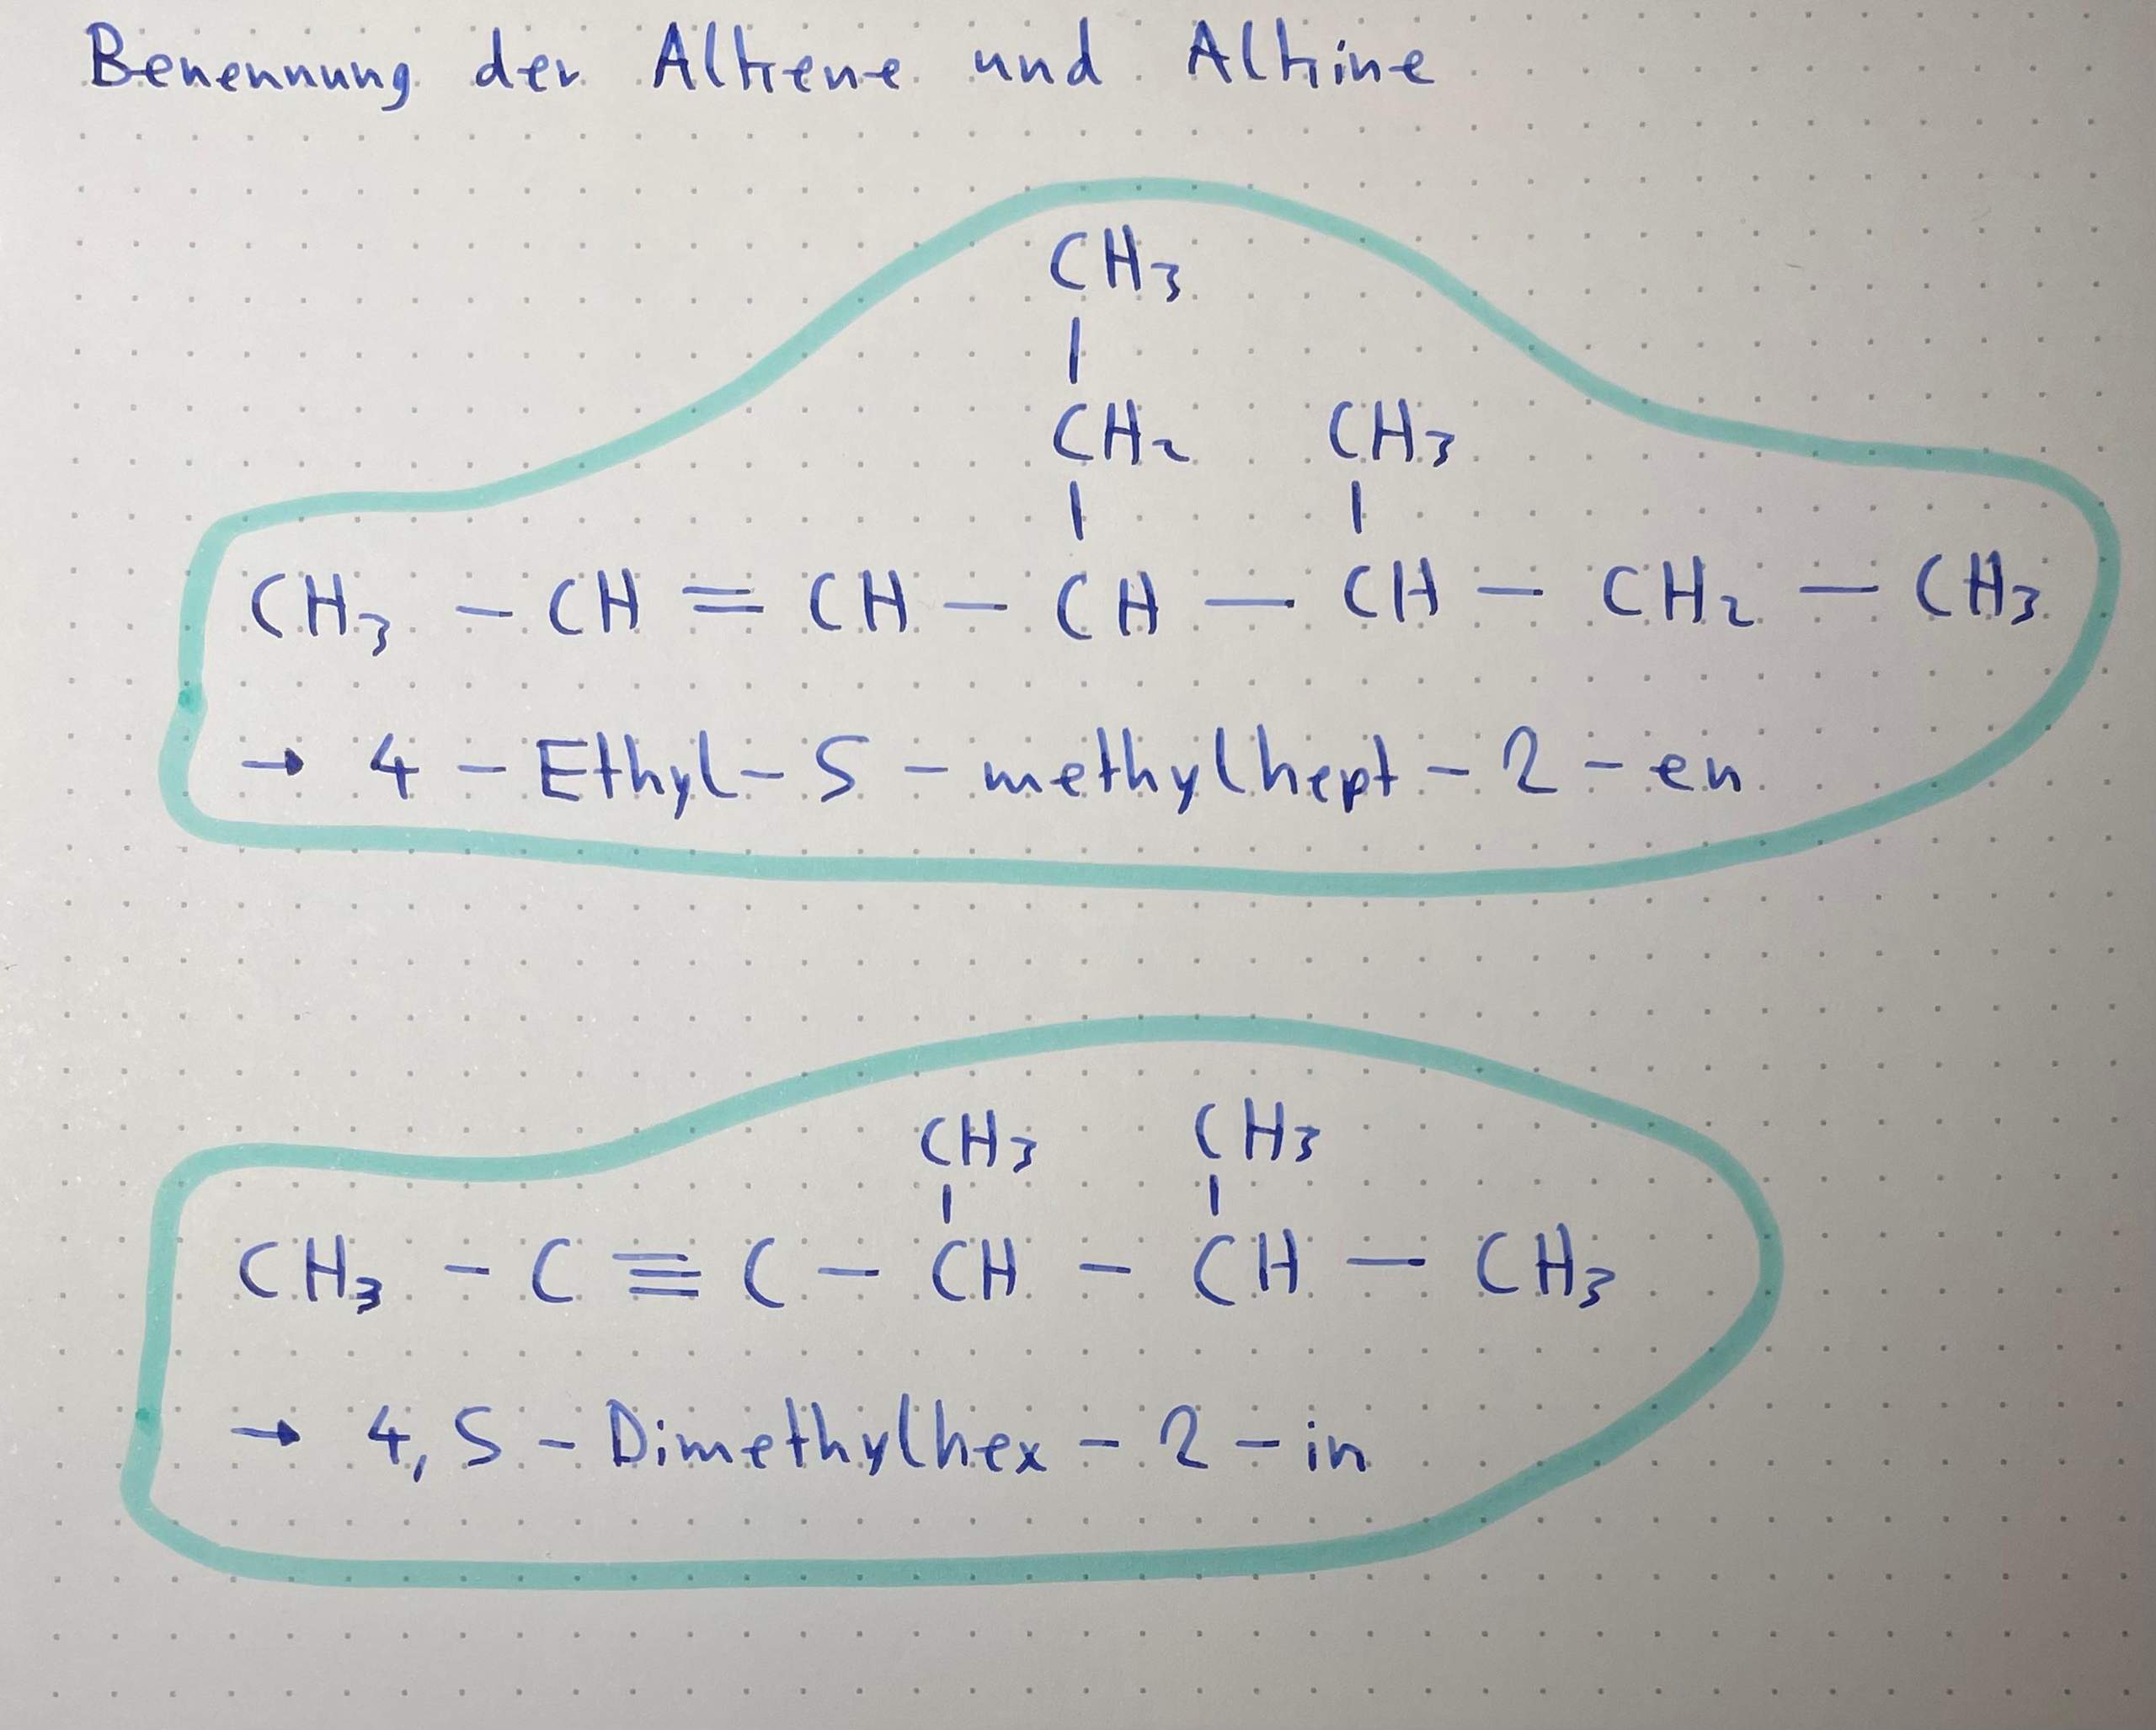 Benennung der Alkene und Alkine
CH3
|
CH2 CH3
| |
CH3 - CH = CH - CH - CH - CH2 - CH3
→ 4 - Ethyl - 5 - methylhept - 2 - en
CH3 CH3
| |
CH3 - C ≡ C - CH - CH - CH3
→ 4,5 - Dimethylhex - 2 - in